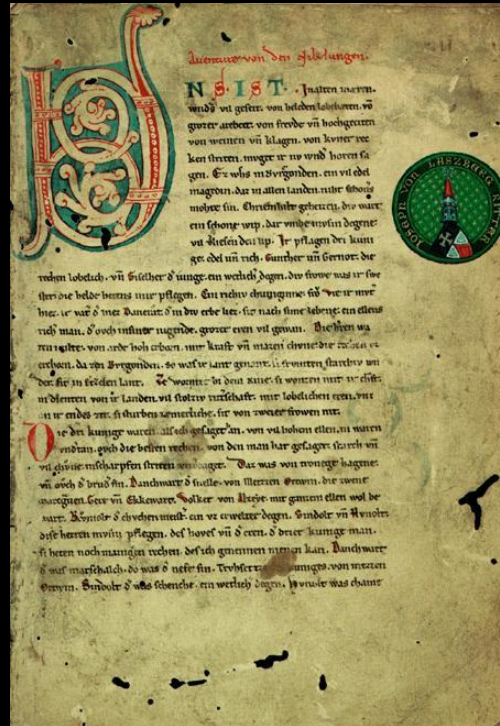 Auenture von den Nibelungen.
VNS IST. In alten mæren.
wnders vil geseit. von heleden lobebæren. vō
grozer arebeit. von frevde vn̄ hochgeciten
von weinen vn̄ klagen. von kvner rec
ken striten. mvget ir nv wnder horen sa
gen. Ez whs in Bvrgonden. ein vil edel
magedin. daz in allen landen. niht schoners
mohte sin. Chriemhilt geheizen. div wart
ein schone wip. dar vmbe mvsin degene
vil verliesen den lip. Ir pflagen dri kuni
ge. edel vn̄ rich. Gunther vn̄ Gernot. die
rechen lobelich. vn̄ Giselher d iunge. ein wetlich degen. div frowe was ir swe
ster. die helde hetens inir pflegen. Ein richiv chuniginne. frō Vte ir mvt
hiez. ir vat d hiez Dancrat. d in div erbe liez. sit nach sime lebene. ein ellens
rich man. d ovch insiner iugende. grozer eren vil gewan. Die hren wa
ren milte. von arde hoh erborn. mit kraft vn̄ mazen chvne. die rechen vz
erchorn. da zen Bvrgonden. so was ir lant genant. si frumten starchiv wn
der. sit in Ezelen lant. Ze Wormze bi dem Rine. si wonten mit ir chraft.
in dienten von ir landen. vil stolziv ritterschaft. mit lobelichen eren. vnz
an ir endes zit. si sturben iæmerliche. sit von zweier frowen nit.
Die dri kunige waren. als ich gesaget han. von vil hohen ellen. in waren
vndertan. ovch die besten rechen. von den man hat gesaget. starch vn̄
vil chvne. in scharpfen striten vnverzaget. Daz was von Tronege Hagene.
vn̄ ovch d brud sin. Danchwart d snelle. von Metzen Ortwin. die zwene
marcgraven. Gere vn̄ Ekkewart. Volker von Alzeye. mit ganzem ellen wol be
wart. Rvmolt d chvchenmeist. ein vz erwelter degen. Sindolt vn̄ Hvnolt.
dise herren mvsin pflegen. des hoves vn̄ d eren. d drier kunige man.
si heten noch manigen rechen. des ich genennen nienen kan. Danchwart
d was marschalch. do was d nefe sin. Truhsetze des kuniges. von Metzen
Ortwin. Sindolt d was schenche. ein wetlich degen. Hvnolt was chame
JOSEPH VON LASZBERG RITTER